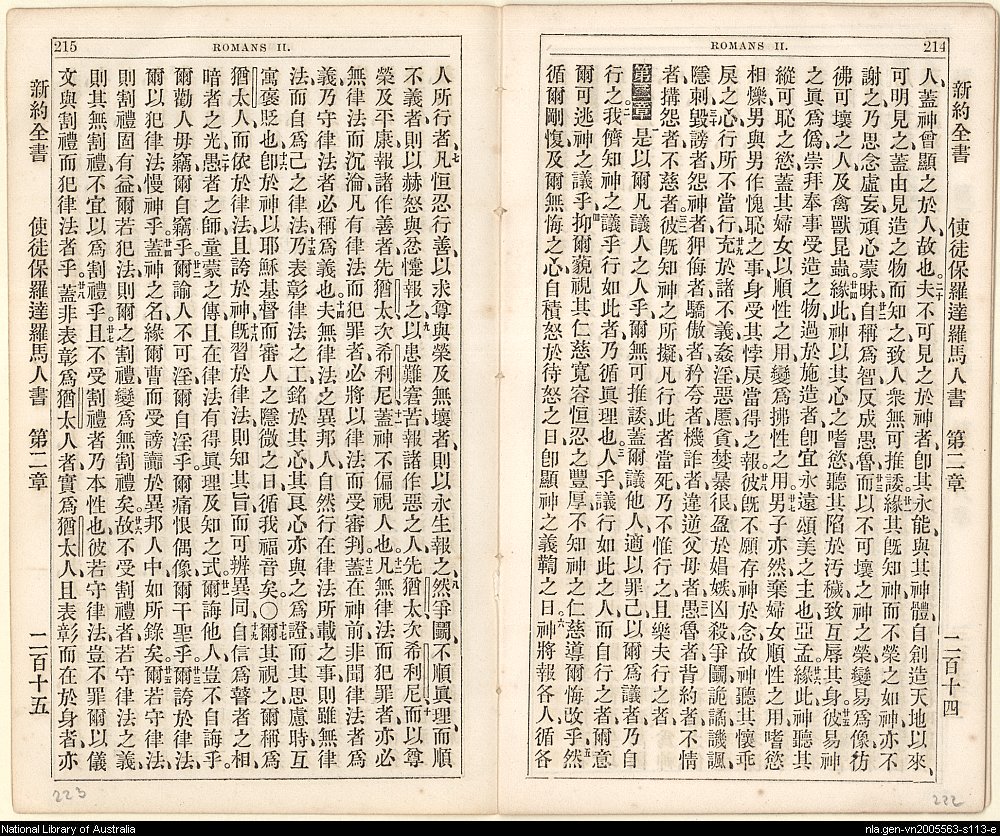 214
ROMANS II.
新約全書 使徒保羅達羅馬人書 第二章 二百十四
人、蓋神曾顯之於人故也。二十夫不可見之於神者、卽其永能、與其神體、自創造天地以來、
可明見之、蓋由見造之物而知之、致人衆無可推諉、廿一緣其旣知神、而不榮之如神、亦不
謝之、乃思念虛妄、頑心蒙昧、廿二自稱爲智、反成愚魯、廿三而以不可壞之神之榮、變易爲像彷
彿可壞之人及禽獸昆蟲、廿四緣此神以其心之嗜慾、聽其陷於汚穢、致互辱其身、廿五彼易神
之眞爲僞、崇拜奉事受造之物、過於施造者、卽宜永遠頌美之主也、亞孟、廿六緣此神聽其
縱可恥之慾、蓋其婦女以順性之用、變爲拂性之用、廿七男子亦然、棄婦女順性之用、嗜慾
相爍、男與男作愧恥之事、身受其悖戾當得之報。廿八彼旣不願存神於念、故神聽其懷乖
戾之心、行所不當行、廿九充於諸不義、姦淫、惡慝、貪婪、暴很、盈於娼嫉、凶殺、爭鬬、詭譎、譏諷、
隱刺、三十毀謗者、怨神者、狎侮者、驕傲者、矜夸者、機詐者、違逆父母者、三一愚魯者、背約者、不情
者、搆怨者、不慈者、三二彼旣知神之所擬、凡行此者當死、乃不惟行之、且樂夫行之者。
第二章 一是以爾凡議人之人乎、爾無可推諉、蓋爾議他人、適以罪己、以爾爲議者、乃自
行之。二我儕知神之議乎行如此者、乃循眞理也。三人乎、議行如此之人、而自行之者、爾意
爾可逃神之議乎。四抑爾藐視其仁慈寬容恒忍之豐厚、不知神之仁慈導爾悔改乎。五然
循爾剛愎、及爾無悔之心、自積怒於待怒之日、卽顯神之義鞫之日、六神將報各人、循各
222
215
ROMANS II.
人所行者、七凡恒忍行善、以求尊與榮及無壞者、則以永生報之、八然爭鬬、不順眞理、而順
不義者、則以赫怒與忿懥報之、九以患難窘苦報諸作惡之人、先猶太、次希利尼、十而以尊
榮及平康、報諸作善者、先猶太、次希利尼、十一蓋神不偏視人也。十二凡無律法而犯罪者、亦必
無律法而沉淪、凡有律法而犯罪者、必將以律法而受審判、十三蓋在神前、非聞律法者爲
義、乃守律法者、必稱爲義也。十四夫無律法之異邦人、自然行在律法所載之事、則雖無律
法、而自爲己之律法、十五乃表彰律法之工、銘於其心、其良心亦與之爲證、而其思慮時互
寓褒貶也、十六卽於神以耶穌基督而審人之隱微之日、循我福音矣。〇十七爾其視之、爾稱爲
猶太人、而依於律法、且誇於神、十八旣習於律法、則知其旨、而可辨異同、十九自信爲瞽者之相、
暗者之光、二十愚者之師、童蒙之傳、且在律法有得眞理及知之式、廿一爾誨他人、豈不自誨乎。
爾勸人毋竊、爾自竊乎。廿二爾諭人不可淫、爾自淫乎、爾痛恨偶像、爾干聖乎。廿三爾誇於律法、
爾以犯律法慢神乎。廿四蓋神之名、緣爾曹而受謗讟於異邦人中、如所錄矣。廿五爾若守律法、
則割禮固有益、爾若犯法、則爾之割禮變爲無割禮矣。廿六故不受割禮者、若守律法之義、
則其無割禮、不宜以爲割禮乎。廿七且不受割禮者、乃本性也、彼若守律法、豈不罪爾以儀
文與割禮而犯律法者乎。廿八蓋非表彰爲猶太人者、實爲猶太人、且表彰而在於身者、亦
新約全書 使徒保羅達羅馬人書 第二章 二百十五
223
National Library of Australia
nla.gen-vn2005563-s113-e